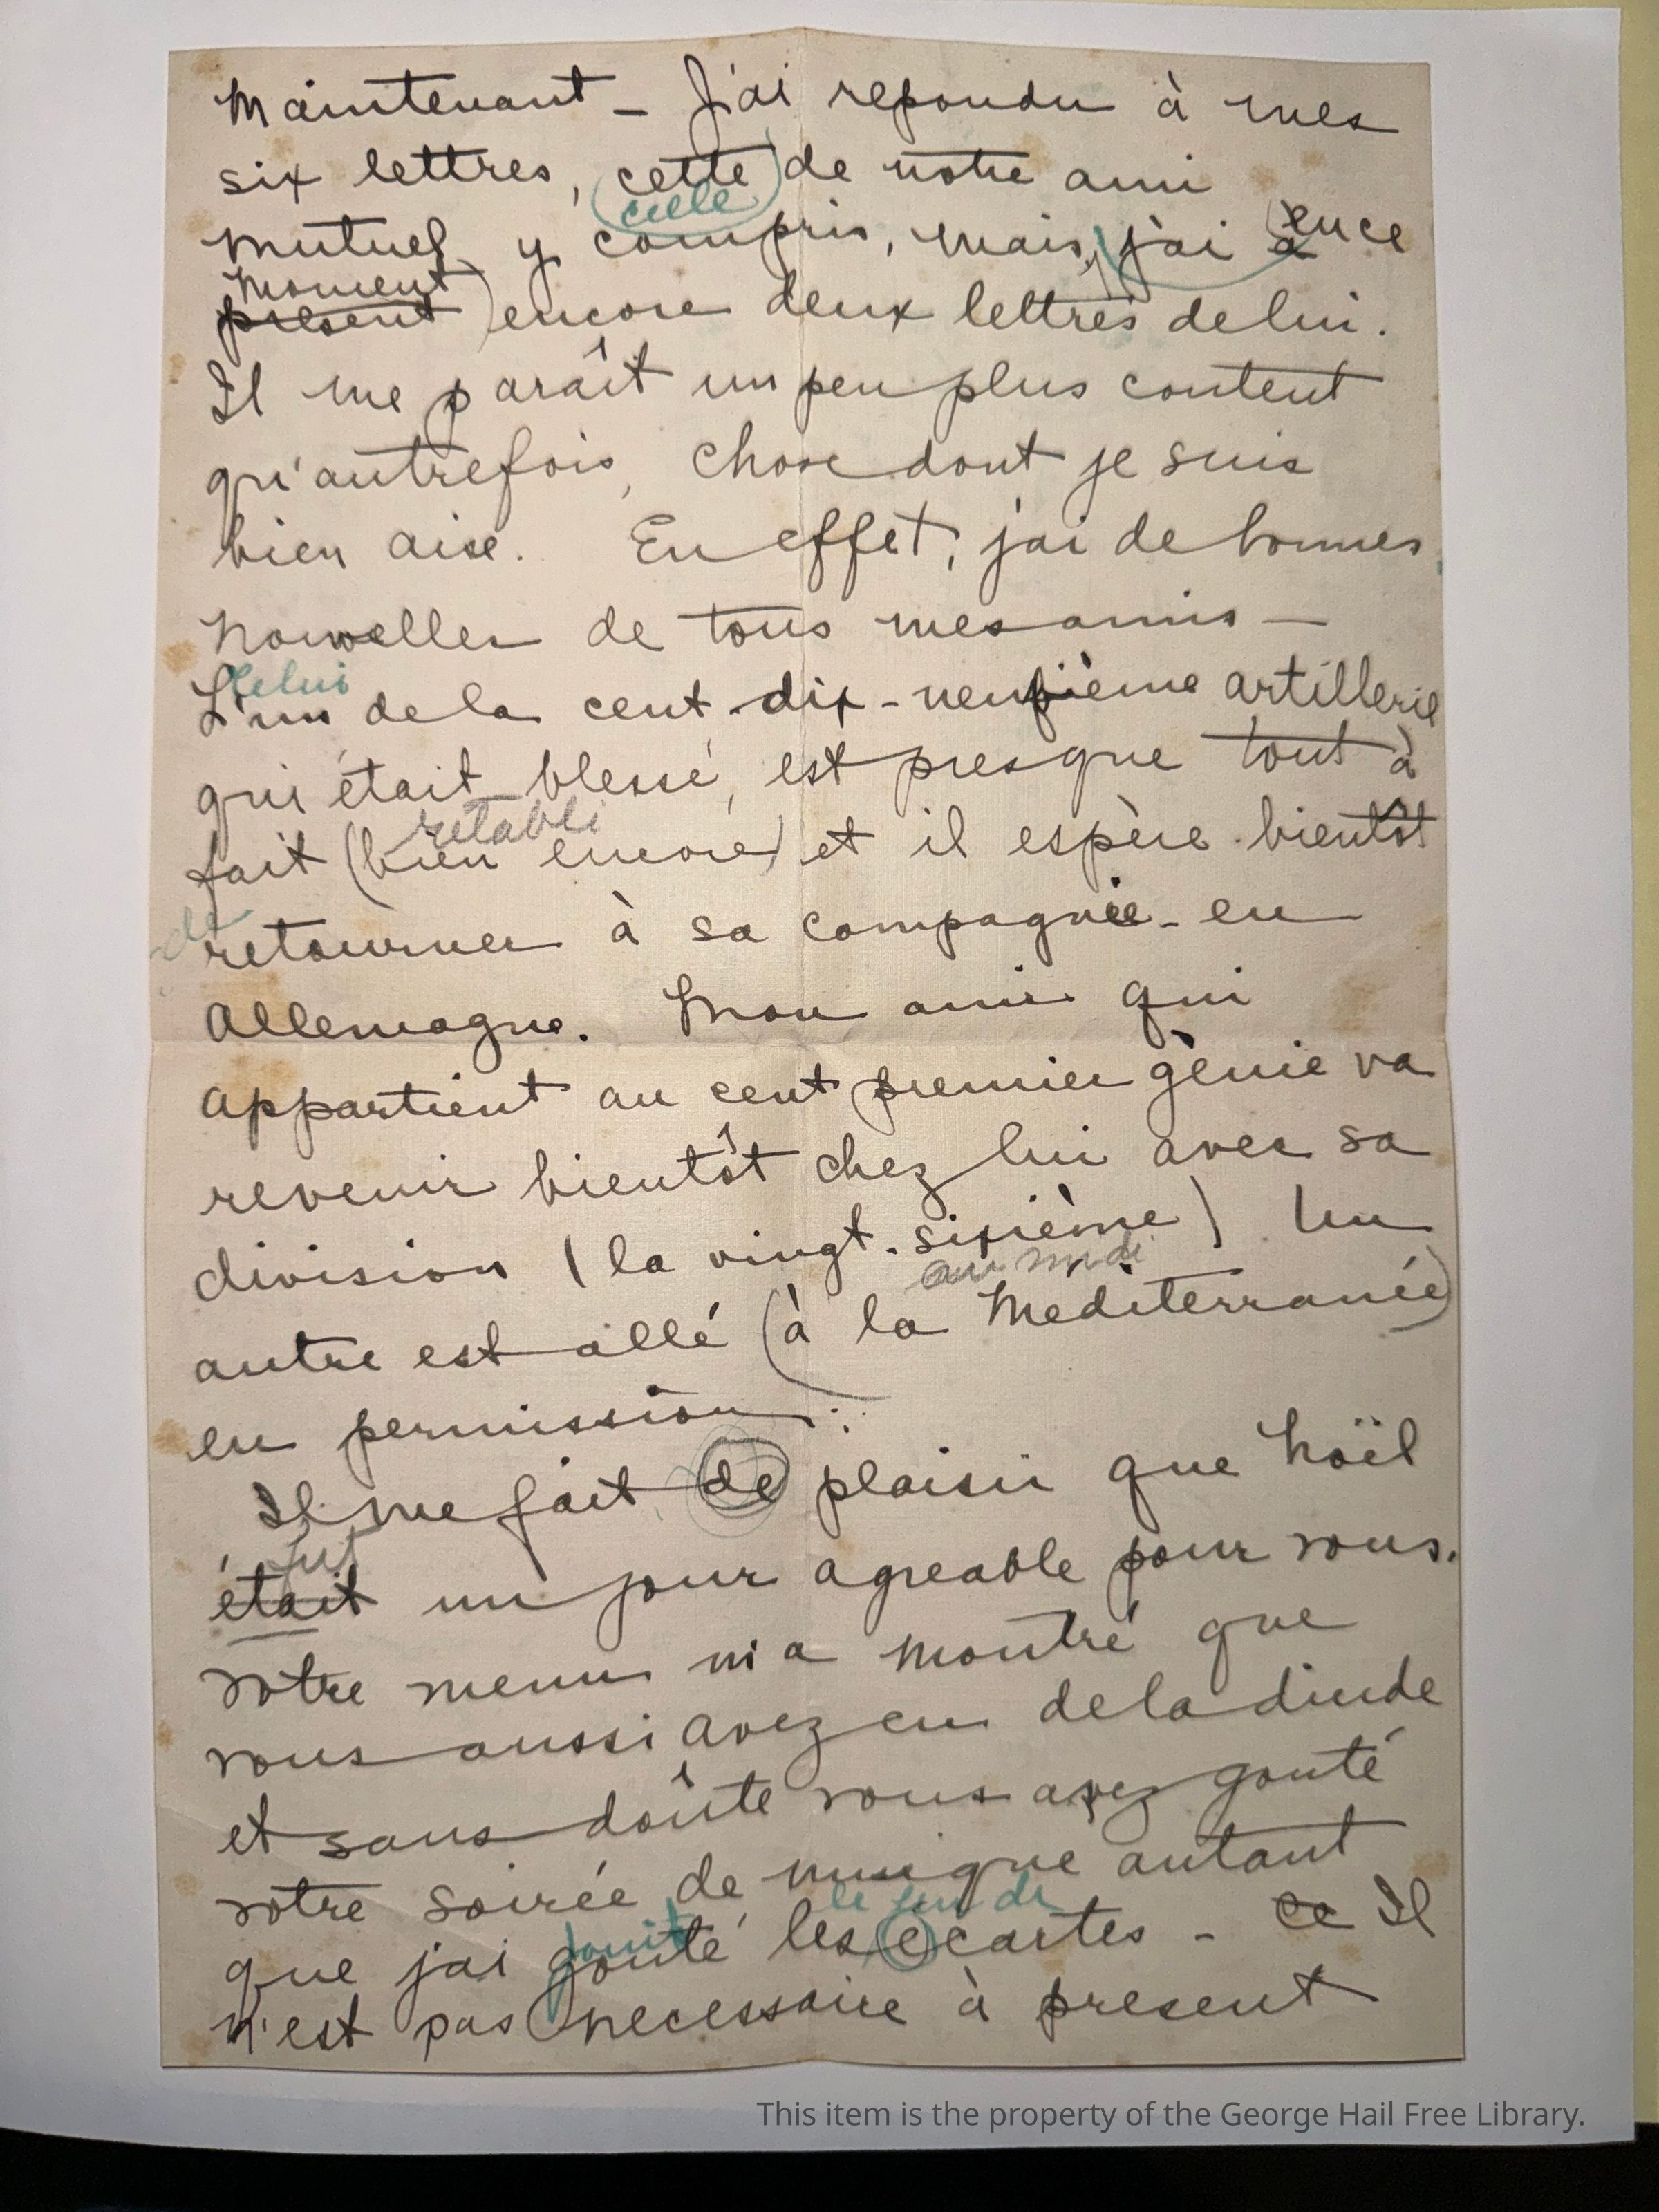 Maintenant – J'ai repondu à mes
six lettres, (cette) de notre ami
celle
mutuel y compris, mais, j'ai à en ce
moment
present) encore deux lettres de lui.
Il me paraît un peu plus content
qu'autrefois, chose dont je suis
bien aise. En effet, j'ai de bonnes
nouvelles de tous mes amis –
Celui
L'un de la cent-dix-neuvième artillerie
qui était blessé, est presque tout à
retabli
fait (bien encore) et il espère bientôt
de
retourner à sa compagnie en
Allemagne. Mon ami qui
appartient au cent premier génie va
revenir bientôt chez lui avec sa
division (la vingt-sixième) Un
au midi
autre est allé (à la Mediterranée)
en permission.
Il me fait de plaisir que Noël
fut
était un jour agreable pour vous.
Votre menu m'a montré que
vous aussi avez eu de la dinde
et sans doûte vous avez gouté
votre soirée de musique autant
le jeu de
que j'ai gouté les ecartes – Ce Il
n'est pas necessaire à present
This item is the property of the George Hail Free Library.